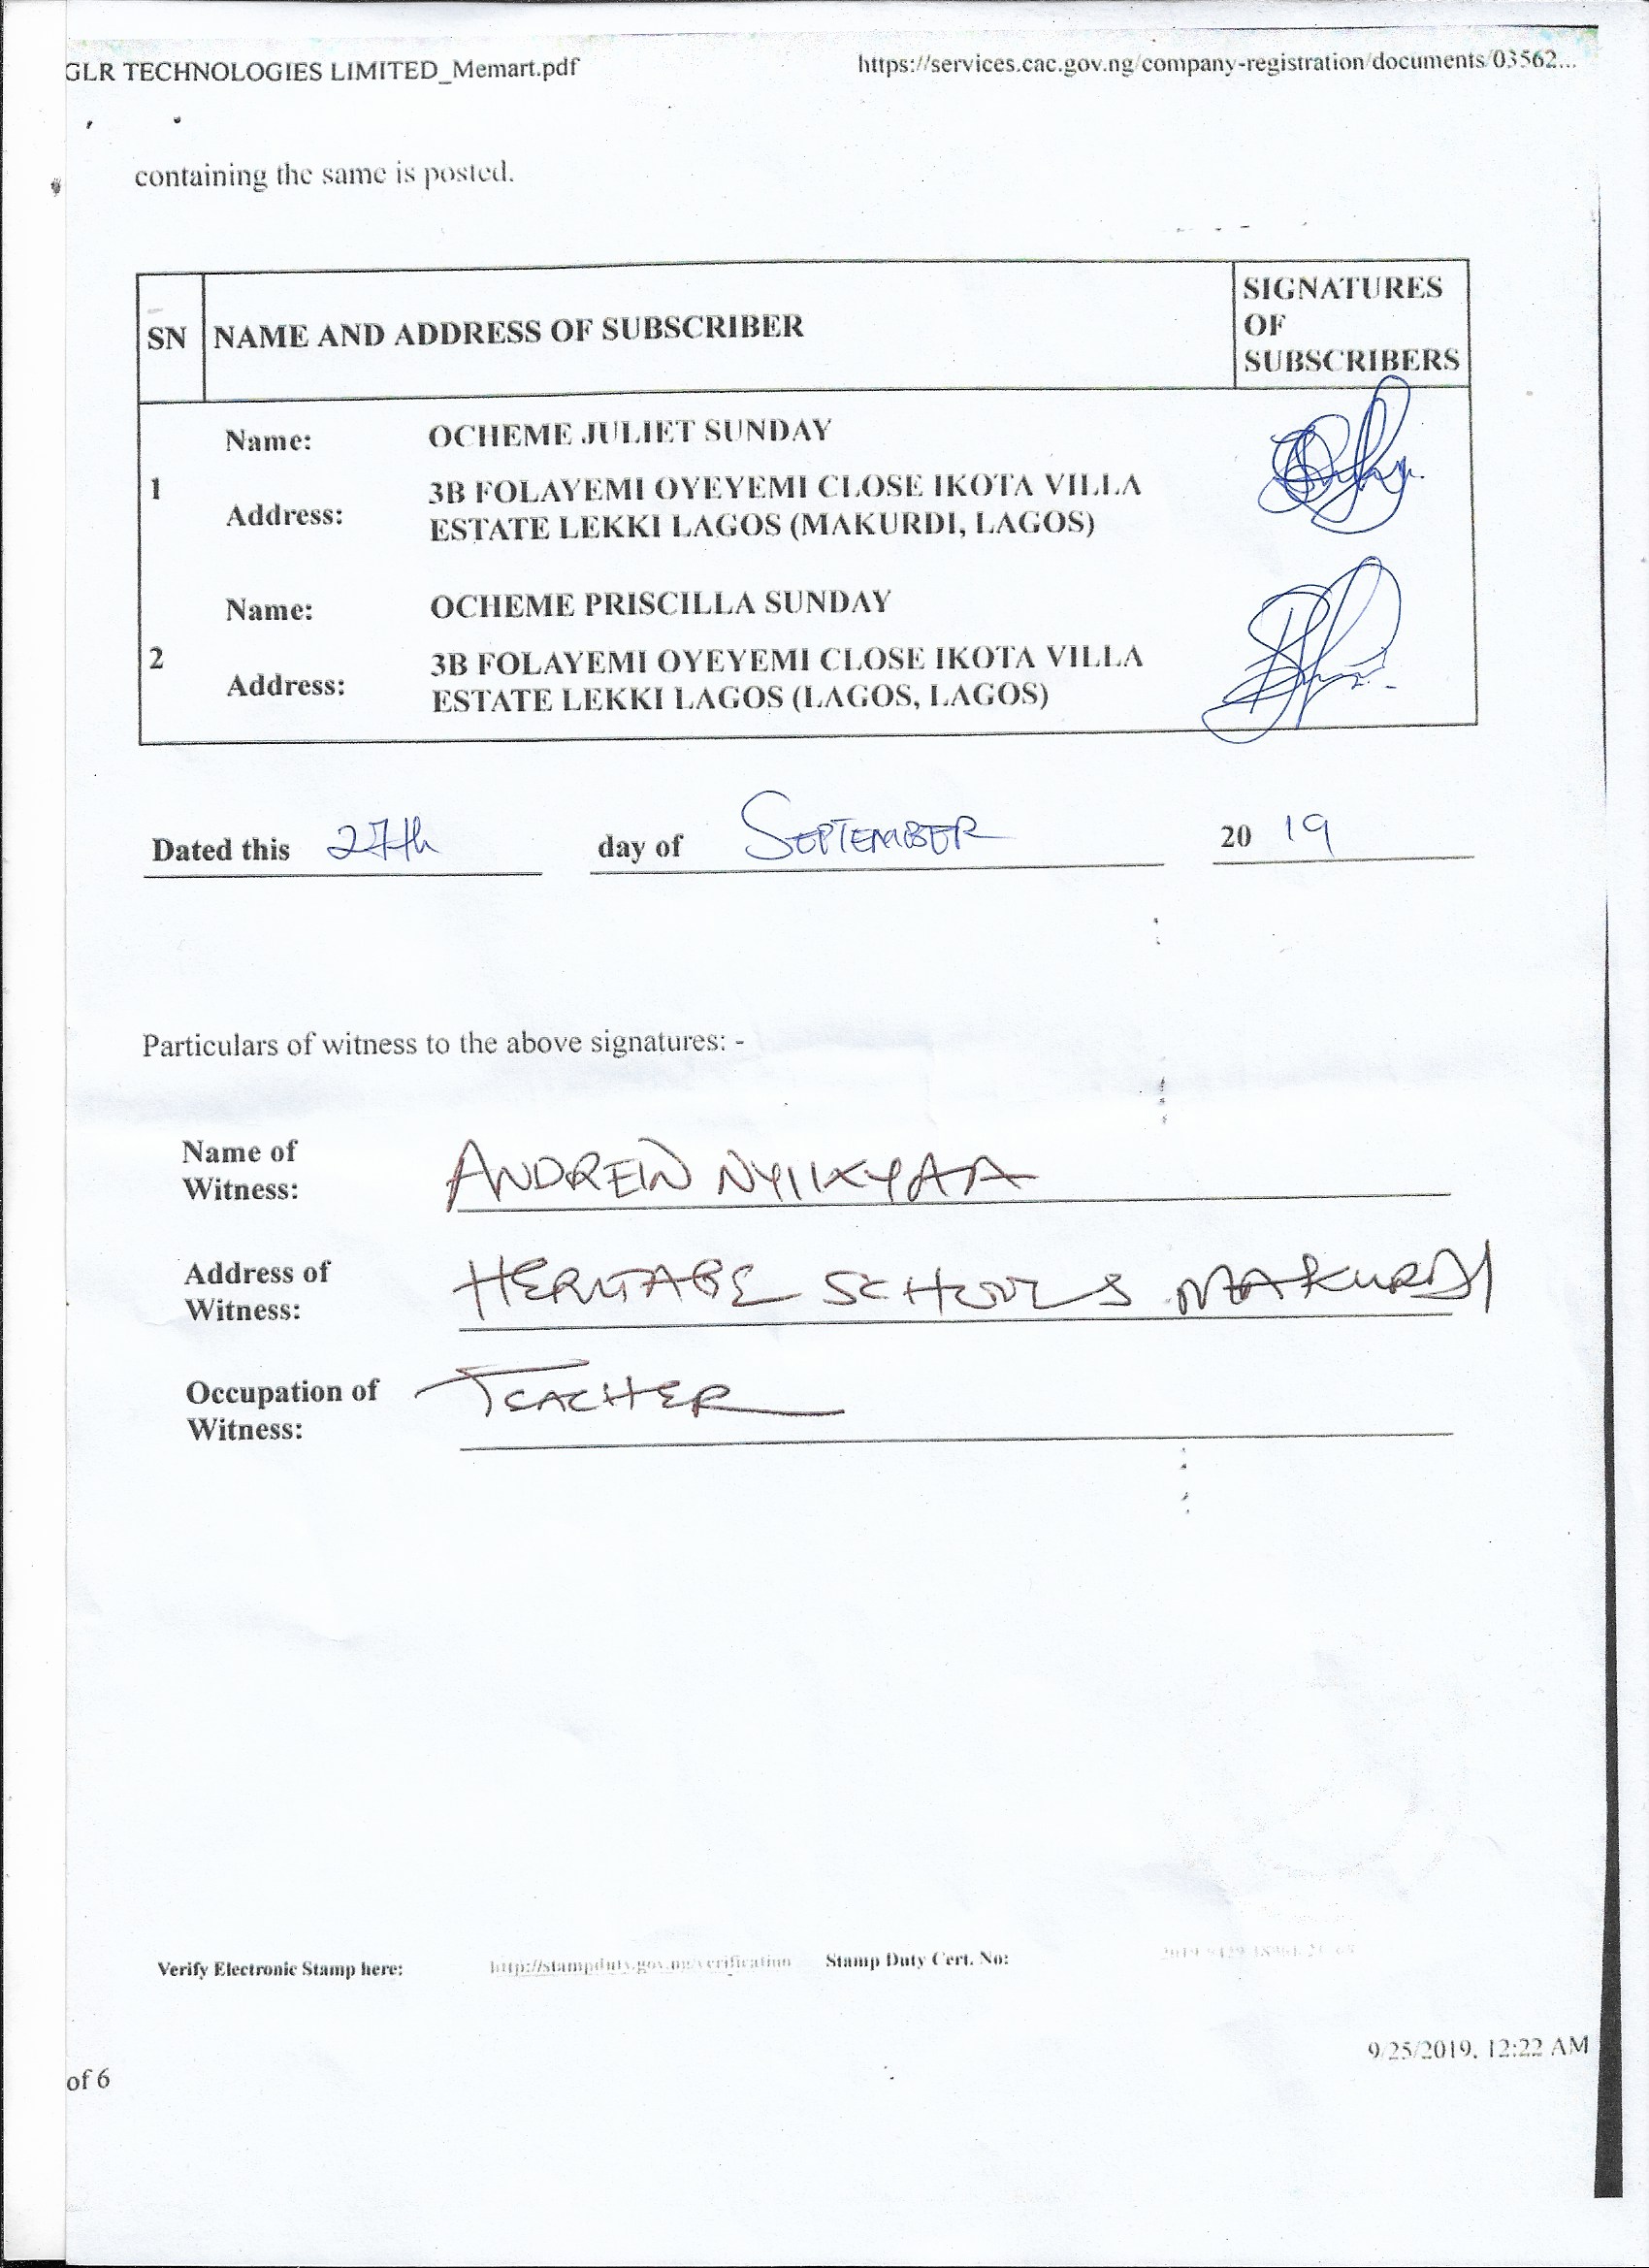 GLR TECHNOLOGIES LIMITED_Memart.pdf
https://services.cac.gov.ng/company-registration/documents/03562...
containing the same is posted.
SN
NAME AND ADDRESS OF SUBSCRIBER
SIGNATURES
OF
SUBSCRIBERS
1
Name: OCHEME JULIET SUNDAY
Address: 3B FOLAYEMI OYEYEMI CLOSE IKOTA VILLA
ESTATE LEKKI LAGOS (MAKURDI, LAGOS)
2
Name: OCHEME PRISCILLA SUNDAY
Address: 3B FOLAYEMI OYEYEMI CLOSE IKOTA VILLA
ESTATE LEKKI LAGOS (LAGOS, LAGOS)
Dated this 27th day of SEPTEMBER 20 19
Particulars of witness to the above signatures: -
Name of
Witness: ANDREW NYIIKYAA
Address of
Witness: HERITAGE SCHOOLS MAKURDI
Occupation of
Witness: TEACHER
Verify Electronic Stamp here: http://stampduty.gov.ng/verification Stamp Duty Cert. No:
9/25/2019, 12:22 AM
of 6